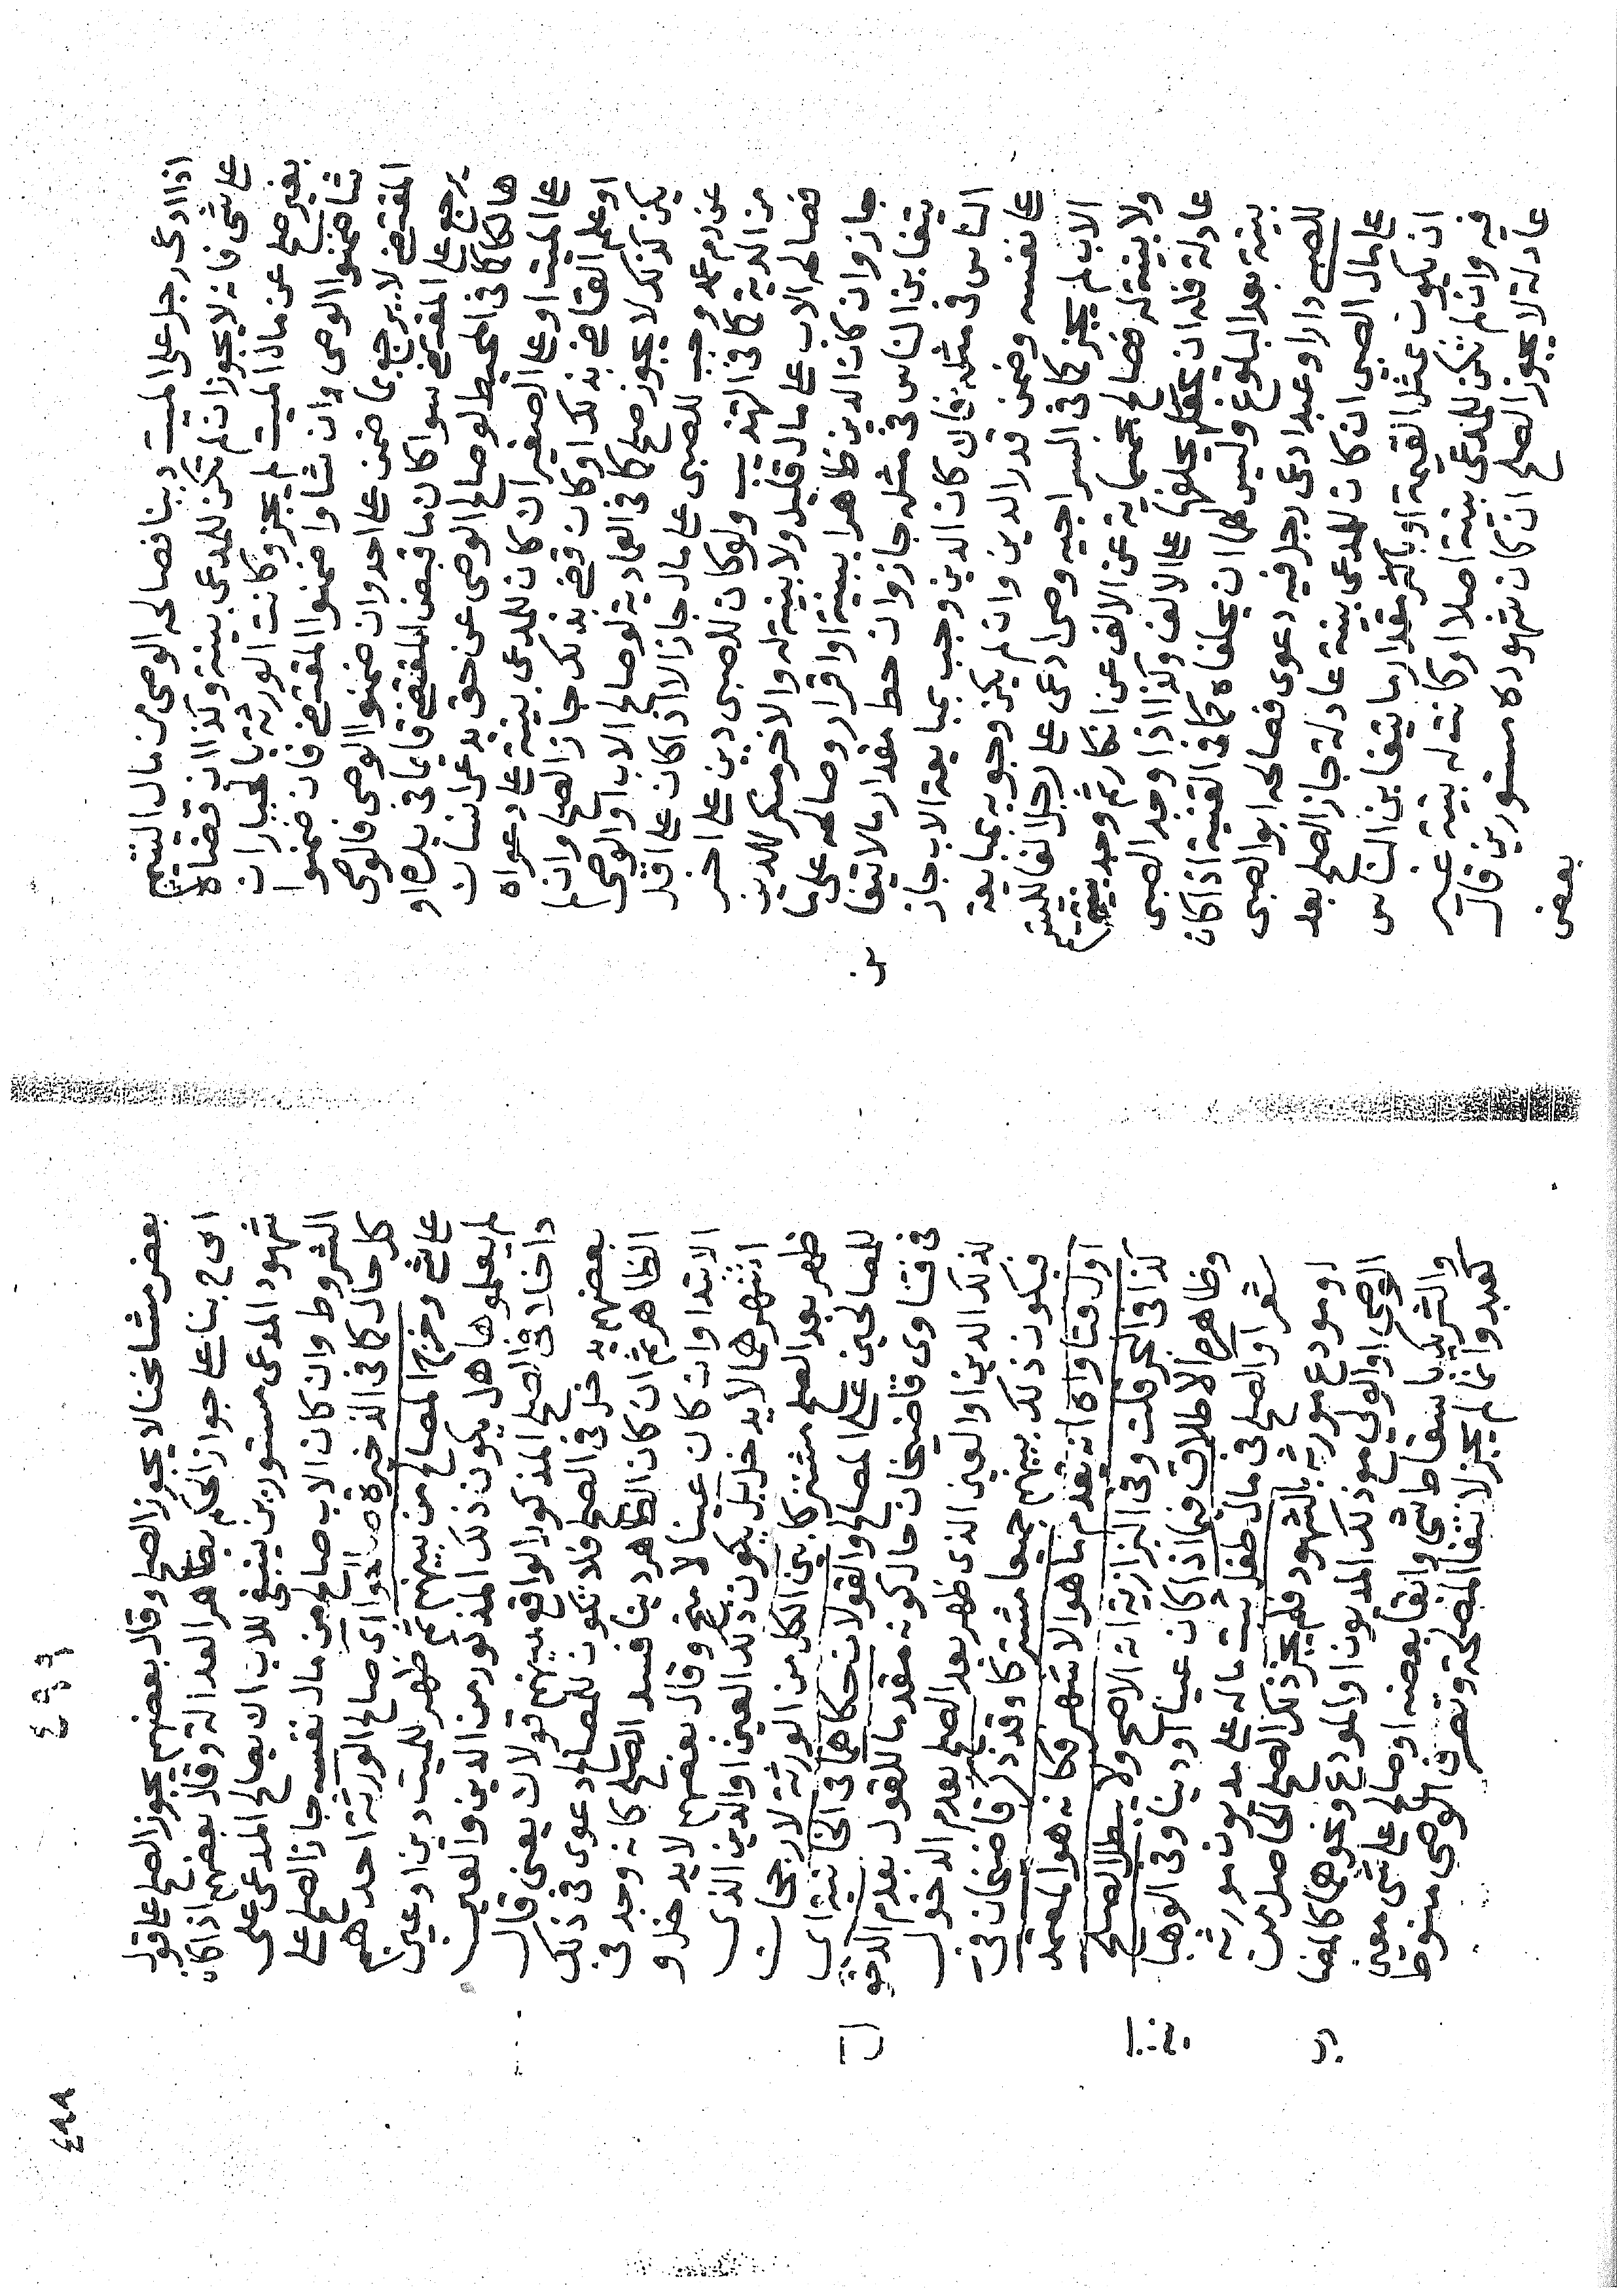 اذا ادى رجل على الميت دينا فصالحه الوصى من مال اليتيم
على شى فانه لا يجوز ان لم تكن للمدعى بينة وكذا ان قضاه
بغير صلح عن ماذا الميت لم يجز وكانت الورثة بالخيار ان
شا ضمنوا الوصى وان شاوا ضمنوا المقتضى فان ضمنوا
المقتضى لا يرجع بما ضمن على احد وان ضمنوا الوصى فالوصى
يرجع على المقتضى سوا كان ما قبض المقتضى قايما فى يده او
هالكا كما فى المحيط لو صالح الوصى عن حق يدعى انسان
على الميت او على الصغير ان كان للمدعى بينة على دعواه
او علم القاضى بذلك او كان قضى بذلك جاز الصلح وان لم
يكن كذلك لا يجوز صلح كما فى العمادية لو صالح الاب او الوصى
عن دم عمد وجب للصبى على مال جاز الا اذا كان على اقل
من الدية كما فى التهذيب ولو كان للصبى دين على اخر
فصالحه الاب على مال قليل ولا بينة له والاخر منكر للدين
جاز وان كان الدين ظاهرا ببينة او اقرار وصالحه على ما
يتغابن الناس فى مثله جاز وان حط مقدار ما لا يتغا بن
الناس فى مثله فان كان الدين وجب بمبايعة الاب جاز
على نفسه وضمن قدر الدين وان لم يكن وجوبه بمبايعة
الاب لم يجز كما فى السراجيه وصى ادعى على رجل الفا لليتيم
ولا بينة له فصالح بخمسماية عن الالف عن انكار ثم وجد بينة
عادلة فله ان يحلفها على الالف وكذا اذا وجد الصبى
بينة بعد البلوغ وليس لهما ان يحلفاه كما فى القنية اذا كان
للصبى دارا وعبدا ادعى رجل فيه دعوى فصالحه ابو الصبى
على مال الصبى ان كان للمدعى بينة عادلة جاز الصلح بعد
ان يكون بمثل القيمة او باكثر مقدار ما يتغابن الناس
فيه وان لم تكن للمدعى بينة اصلا او كانت له بينة غير
عادلة لا يجوز الصلح ان كان شهوده مستورين قال
بعض
٤٩٩
بعض مشايخنا لا يجوز الصلح وقال بعضهم يجوز الصلح على قول
اى ح بنا على جواز الحكم بظاهر العدالة وقال بعضهم اذا كان
شهود المدعى مستورين ينبغى للاب ان يصالح المدعى على
الشروط وان كان الاب صالح من مال نفسه جاز الصلح على
كل حال كما فى الذخيرة صالحوا اى صالح الورثة احدهم
على شى وخرج المصالح من بينهم ثم ظهر للميت دين او عين
لم يعلموها هل يكون ذلك المذكور من الدين والعين
داخلا فى الصلح المذكور الواقع بينهم قولان يعنى قال
بعضهم يدخل فى الصلح فلا تكون للمصالح دعوى فى ذلك
الظاهر ثم ان كان الظاهر دينا فسد الصلح كانه وجد فى
الابتدا وان كان عينا لا صح وقال بعضهم لا يدخل و
اشتهرهما لا يدخل بل يكون ذلك العين او الدين الذى
ظهر بعد الصلح مشتركا بين الكل من الورثة لا رجحان
للمصالحين على المصالح والقولان حكاهما فى الخانية اى
فى فتاوى قاضيخان حال كونه مقدما للقول بعدم الدخو
لذلك الدين او العين الذى ظهر بعد الصلح بعدم الدخول
فيكون ذلك بينهم جميعا مشتركا وقد ذكر قاضيخان فى
اول فتاواه انه يقدم ما هو الاشهر فكانه هو المعتمد
كذا فى البحر قلت وفى البزازية انه الاصح ولا يبطل الصلح
وظاهره الاطلاق فيما اذا كان عينا او دينا وفى الوهبا
شعر او الصلح فى مال طفل ثبت ماله على مديون مورثه
او مودع مورثه بالشهود فلم يجز ذلك الصلح الحاصل من
الوصى او الولى مع ذلك المديون او المودع ونحوهما كالمضا
والشريك باسقاط شى وابقا بعضه او صالح على شى معين
كعبد وانما لم يجز لانتفا المصلحة وتصرف الوصى منوط